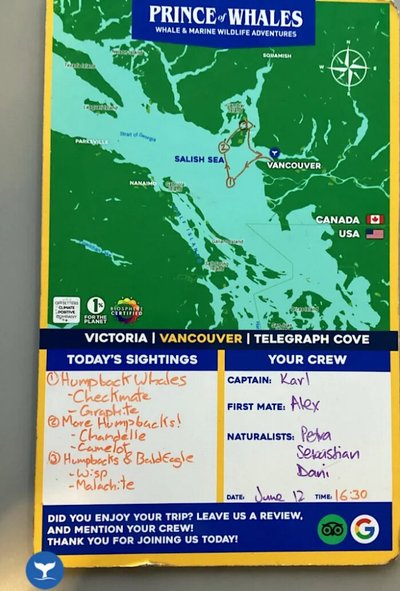 PRINCE of WHALES
WHALE & MARINE WILDLIFE ADVENTURES
SQUAMISH
Strait of Georgia
PARKSVILLE
SALISH SEA
VANCOUVER
NANAIMO
CANADA
USA
1%
FOR THE
PLANET
BIOSPHERE
CERTIFIED
CLIMATE
POSITIVE
VICTORIA | VANCOUVER | TELEGRAPH COVE
TODAY'S SIGHTINGS
① Humpback Whales
- Checkmate
- Graphite
② More Humpbacks!
- Chandelle
- Camelot
③ Humpbacks & Bald Eagle
- Wisp
- Malachite
YOUR CREW
CAPTAIN: Karl
FIRST MATE: Alex
NATURALISTS: Petra
Sebastian
Dani
DATE: June 12 TIME: 16:30
DID YOU ENJOY YOUR TRIP? LEAVE US A REVIEW,
AND MENTION YOUR CREW!
THANK YOU FOR JOINING US TODAY!